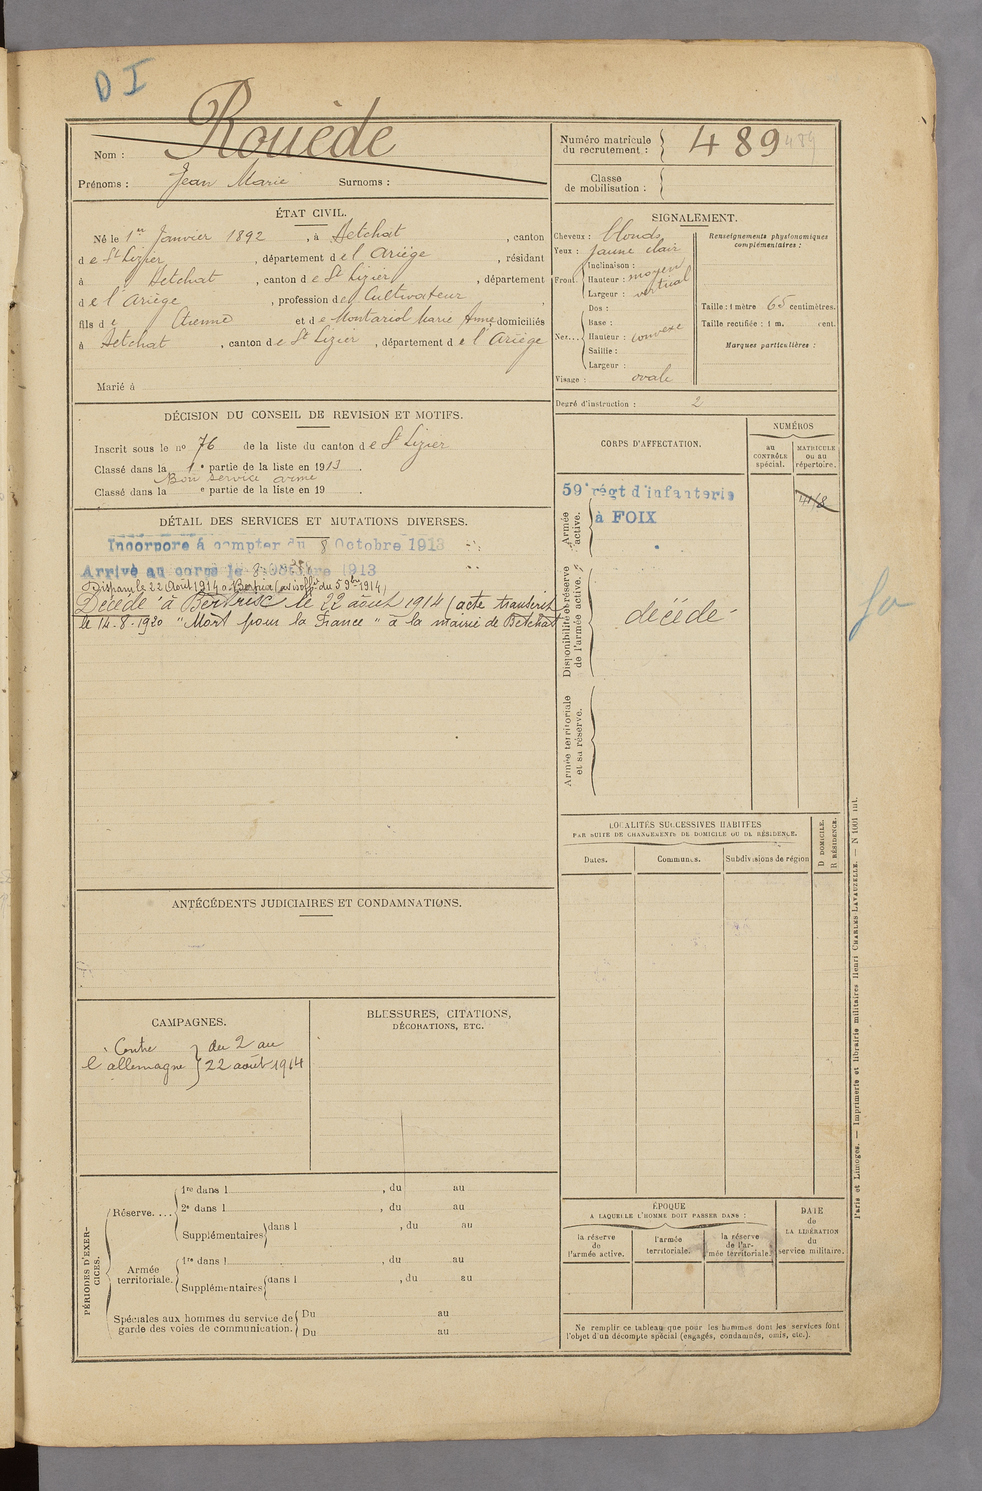 D I
Nom : Rouède
Prénoms : Jean Marie Surnoms :
Numéro matricule du recrutement : 489 489
Classe de mobilisation :
ÉTAT CIVIL.
Né le 1er Janvier 1892, à Betchat, canton
de St Lizier, département de l'Ariège, résidant
à Betchat, canton de St Lizier, département
de l'Ariège, profession de Cultivateur
fils de Etienne et de Montariol Marie Anne domiciliés
à Betchat, canton de St Lizier, département de l'Ariège
Marié à
SIGNALEMENT.
Cheveux : blonds
Yeux : jaune clair
Front. Inclinaison :
Hauteur : moyen
Largeur : vertical
Nez... Dos :
Base :
Hauteur : convexe
Saillie :
Largeur :
Visage : ovale
Renseignements physionomiques
complémentaires :
Taille : 1 mètre 65 centimètres.
Taille rectifiée : 1 m. cent.
Marques particulières :
Degré d'instruction : 2
DÉCISION DU CONSEIL DE REVISION ET MOTIFS.
Inscrit sous le no 76 de la liste du canton de St Lizier
Classé dans la 1e partie de la liste en 1913.
Bon service armé
Classé dans la e partie de la liste en 19 .
DÉTAIL DES SERVICES ET MUTATIONS DIVERSES.
Incorporé à compter du 8 Octobre 1913
Arrivé au corps le 8 Octobre 1913
Disparu le 22 Août 1914 à Bertrix (avis offel du 5 9bre 1914)
Décédé à Bertrix le 22 août 1914 (acte transcrit
le 14-8-1920 "Mort pour la France" à la mairie de Betchat
CORPS D'AFFECTATION.
NUMÉROS
au
CONTRÔLE
spécial.
MATRICULE
ou au
répertoire.
Armée
active.
59e régt d'infanterie
à FOIX
Disponibilité et réserve
de l'armée active.
décédé
Armée territoriale
et sa réserve.
LOCALITÉS SUCCESSIVES HABITÉES
PAR SUITE DE CHANGEMENTS DE DOMICILE OU DE RÉSIDENCE.
Dates.
Communes.
Subdivisions de région
D DOMICILE.
R RÉSIDENCE.
ANTÉCÉDENTS JUDICIAIRES ET CONDAMNATIONS.
CAMPAGNES.
Contre
l'allemagne
du 2 au
22 août 1914
BLESSURES, CITATIONS,
DÉCORATIONS, ETC.
PÉRIODES D'EXER-
CICES.
Réserve....
1re dans l , du au
2e dans l , du au
Supplémentaires dans l , du au
Armée
territoriale.
1re dans l , du au
Supplémentaires dans l , du au
Spéciales aux hommes du service de
garde des voies de communication.
Du au
Du au
ÉPOQUE
A LAQUELLE L'HOMME DOIT PASSER DANS :
la réserve
de
l'armée active.
l'armée
territoriale.
la réserve
de l'ar-
mée territoriale.
DATE
de
LA LIBÉRATION
du
service militaire.
Ne remplir ce tableau que pour les hommes dont les services font
l'objet d'un décompte spécial (engagés, condamnés, omis, etc.).
Paris et Limoges. — Imprimerie et librairie militaires Henri CHARLES LAVAUZELLE. — N 1001 int.